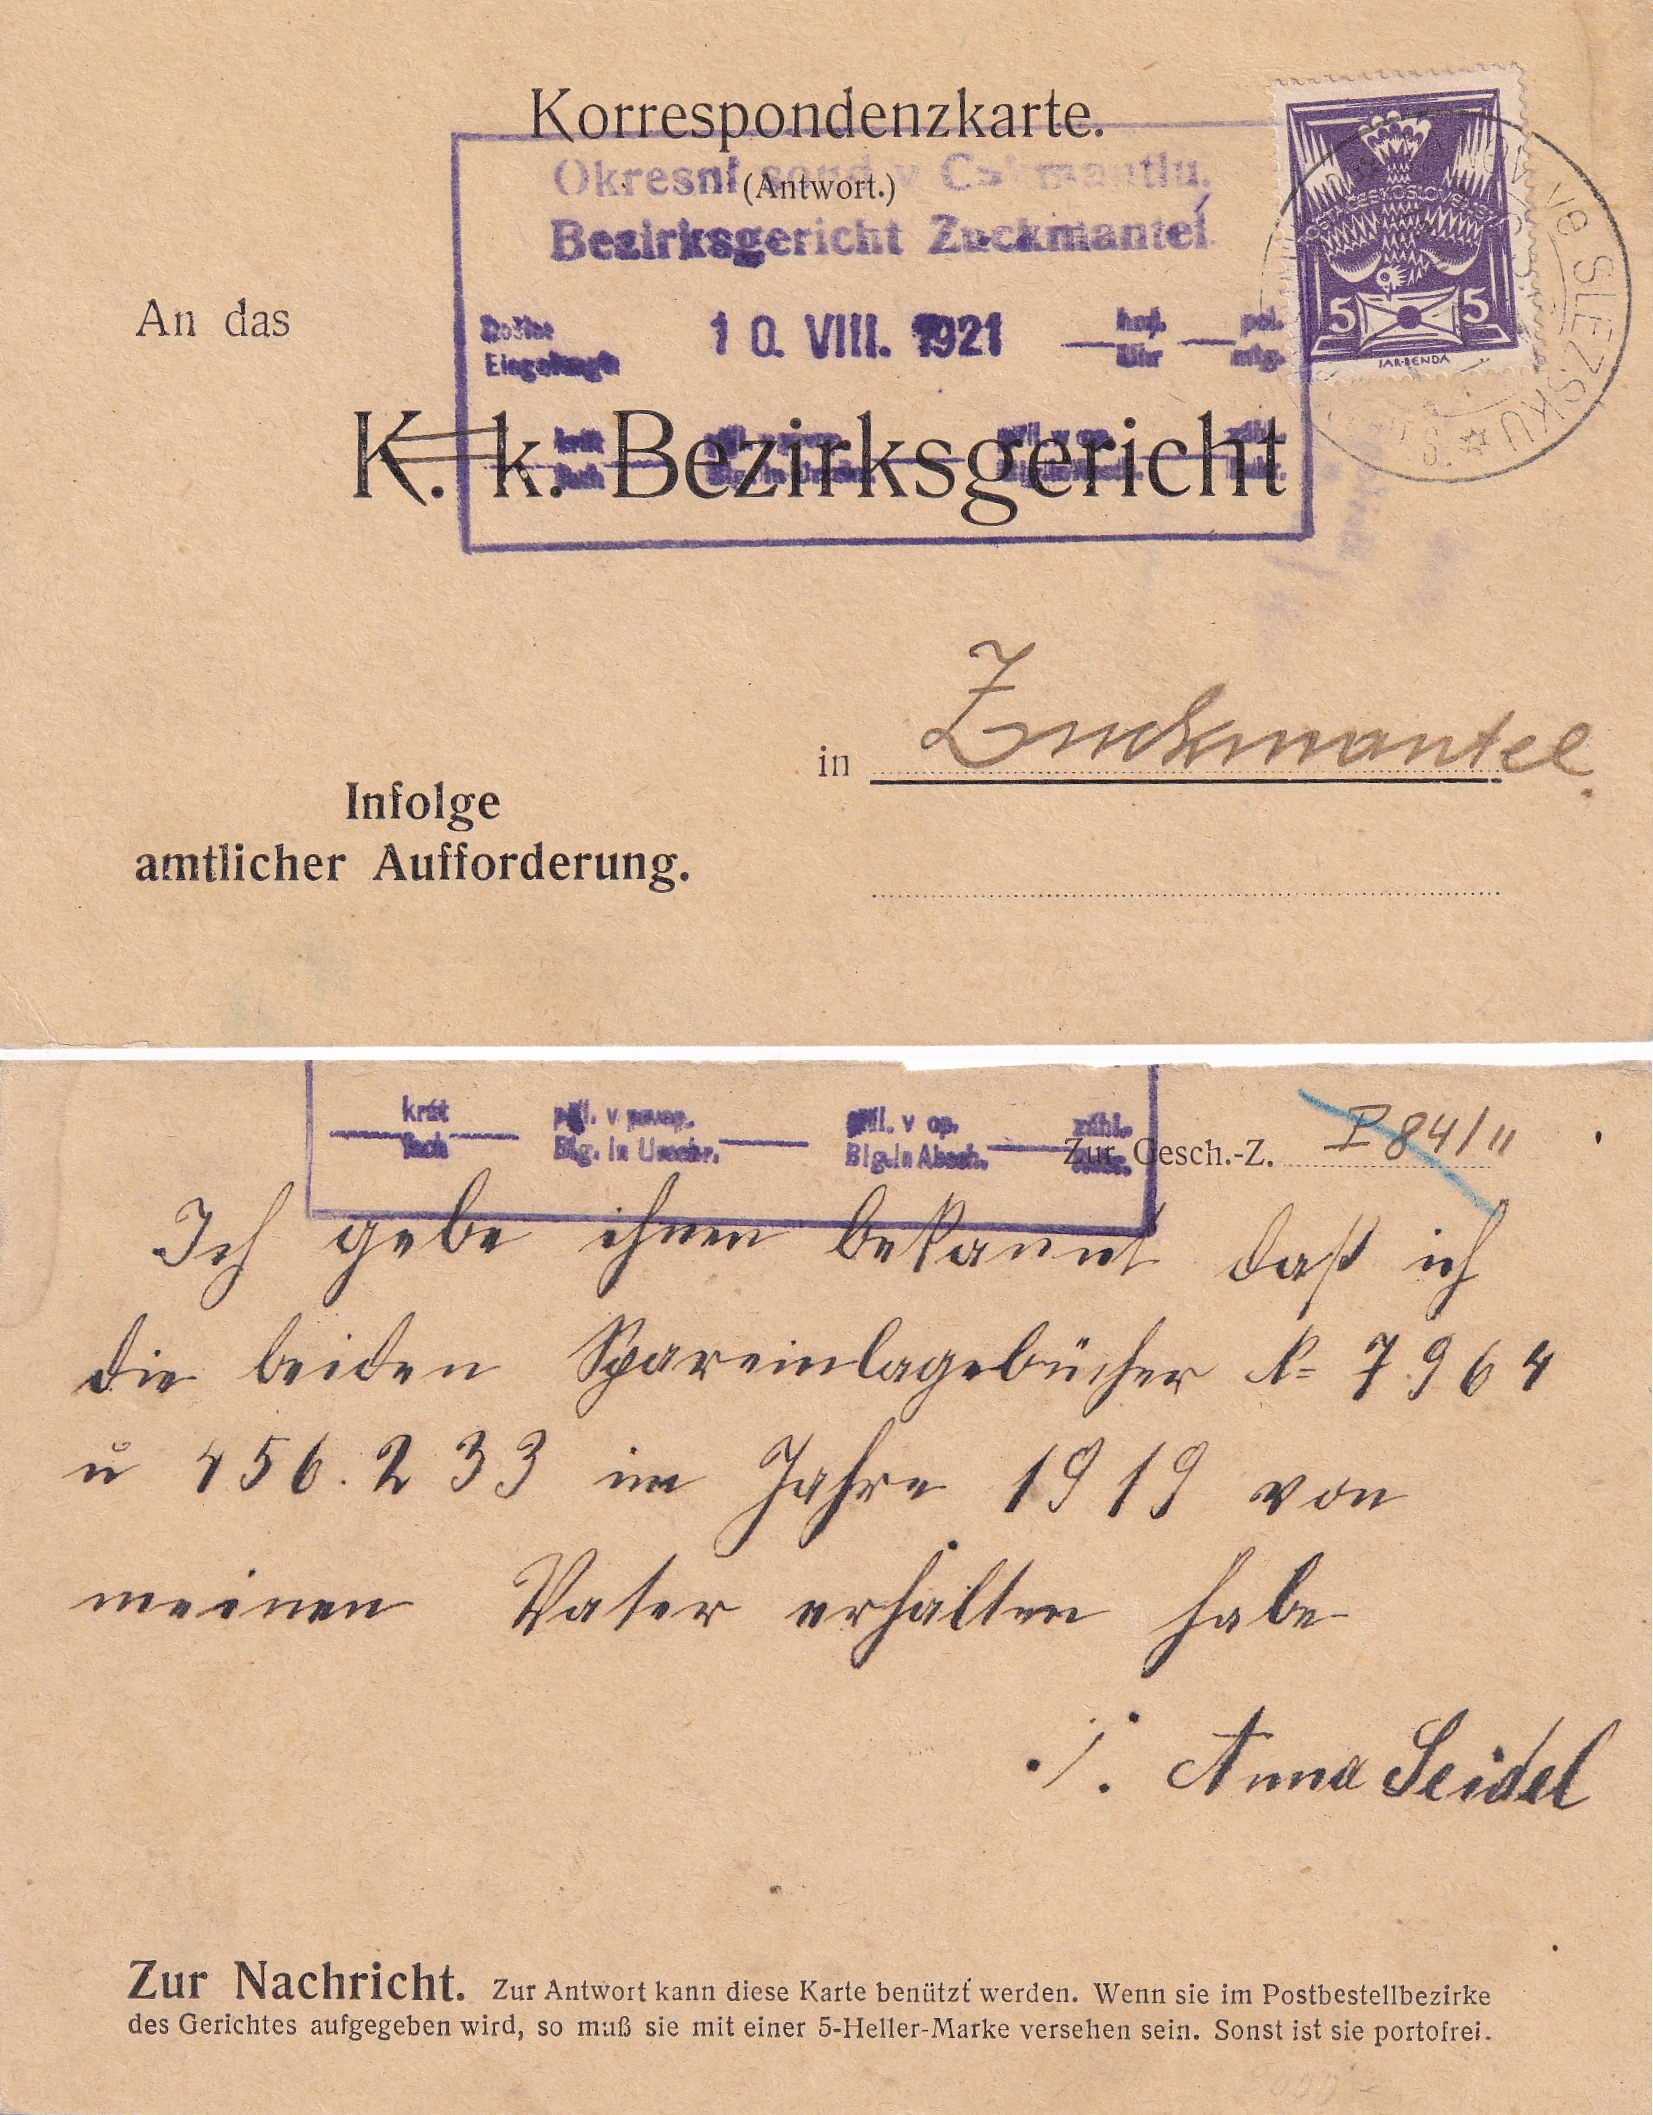 Korrespondenzkarte.
(Antwort.)
Okresní soud v
Bezirksgericht Zuckmantel
An das
Došlo
Eingelangt
10. VIII. 1921
hod. pol.
Uhr mtg.
K. k. Bezirksgericht
5 5
JAR·BENDA
VE SLEZSKU
in Zuckmantel.
Infolge
amtlicher Aufforderung.
krát příl. v op. zähl.
fach Blg. in Absch.
Zur Gesch.-Z. P 84/11
Ich gebe ihnen bekannt daß ich
die beiden Spareinlagebücher № 7964
u 456.233 im Jahre 1919 von
meinen Vater erhalten habe
./. Anna Seidel
Zur Nachricht. Zur Antwort kann diese Karte benützt werden. Wenn sie im Postbestellbezirke
des Gerichtes aufgegeben wird, so muß sie mit einer 5-Heller-Marke versehen sein. Sonst ist sie portofrei.